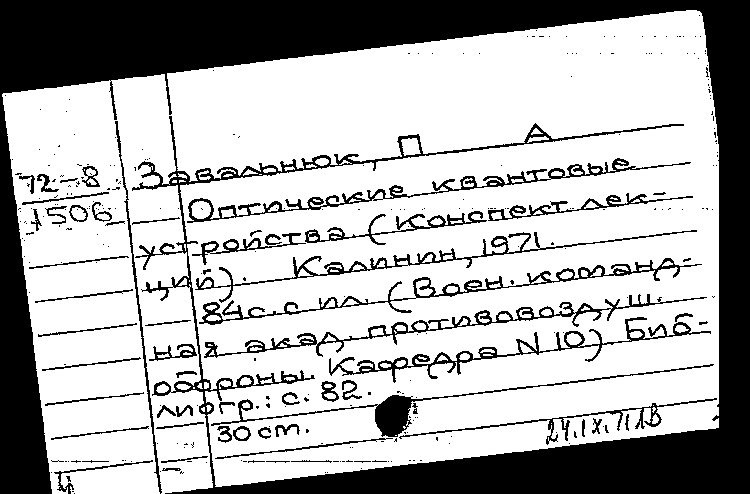 72-8
1506
Завальнюк, П А
Оптические квантовые
устройства. (Конспект лек-
ций). Калинин, 1971.
84с. с ил. (Воен. команд-
ная акад. противовоздуш.
обороны. Кафедра N 10) Биб-
лиогр.: с. 82.
30 см.
24.IX.71 ЛВ